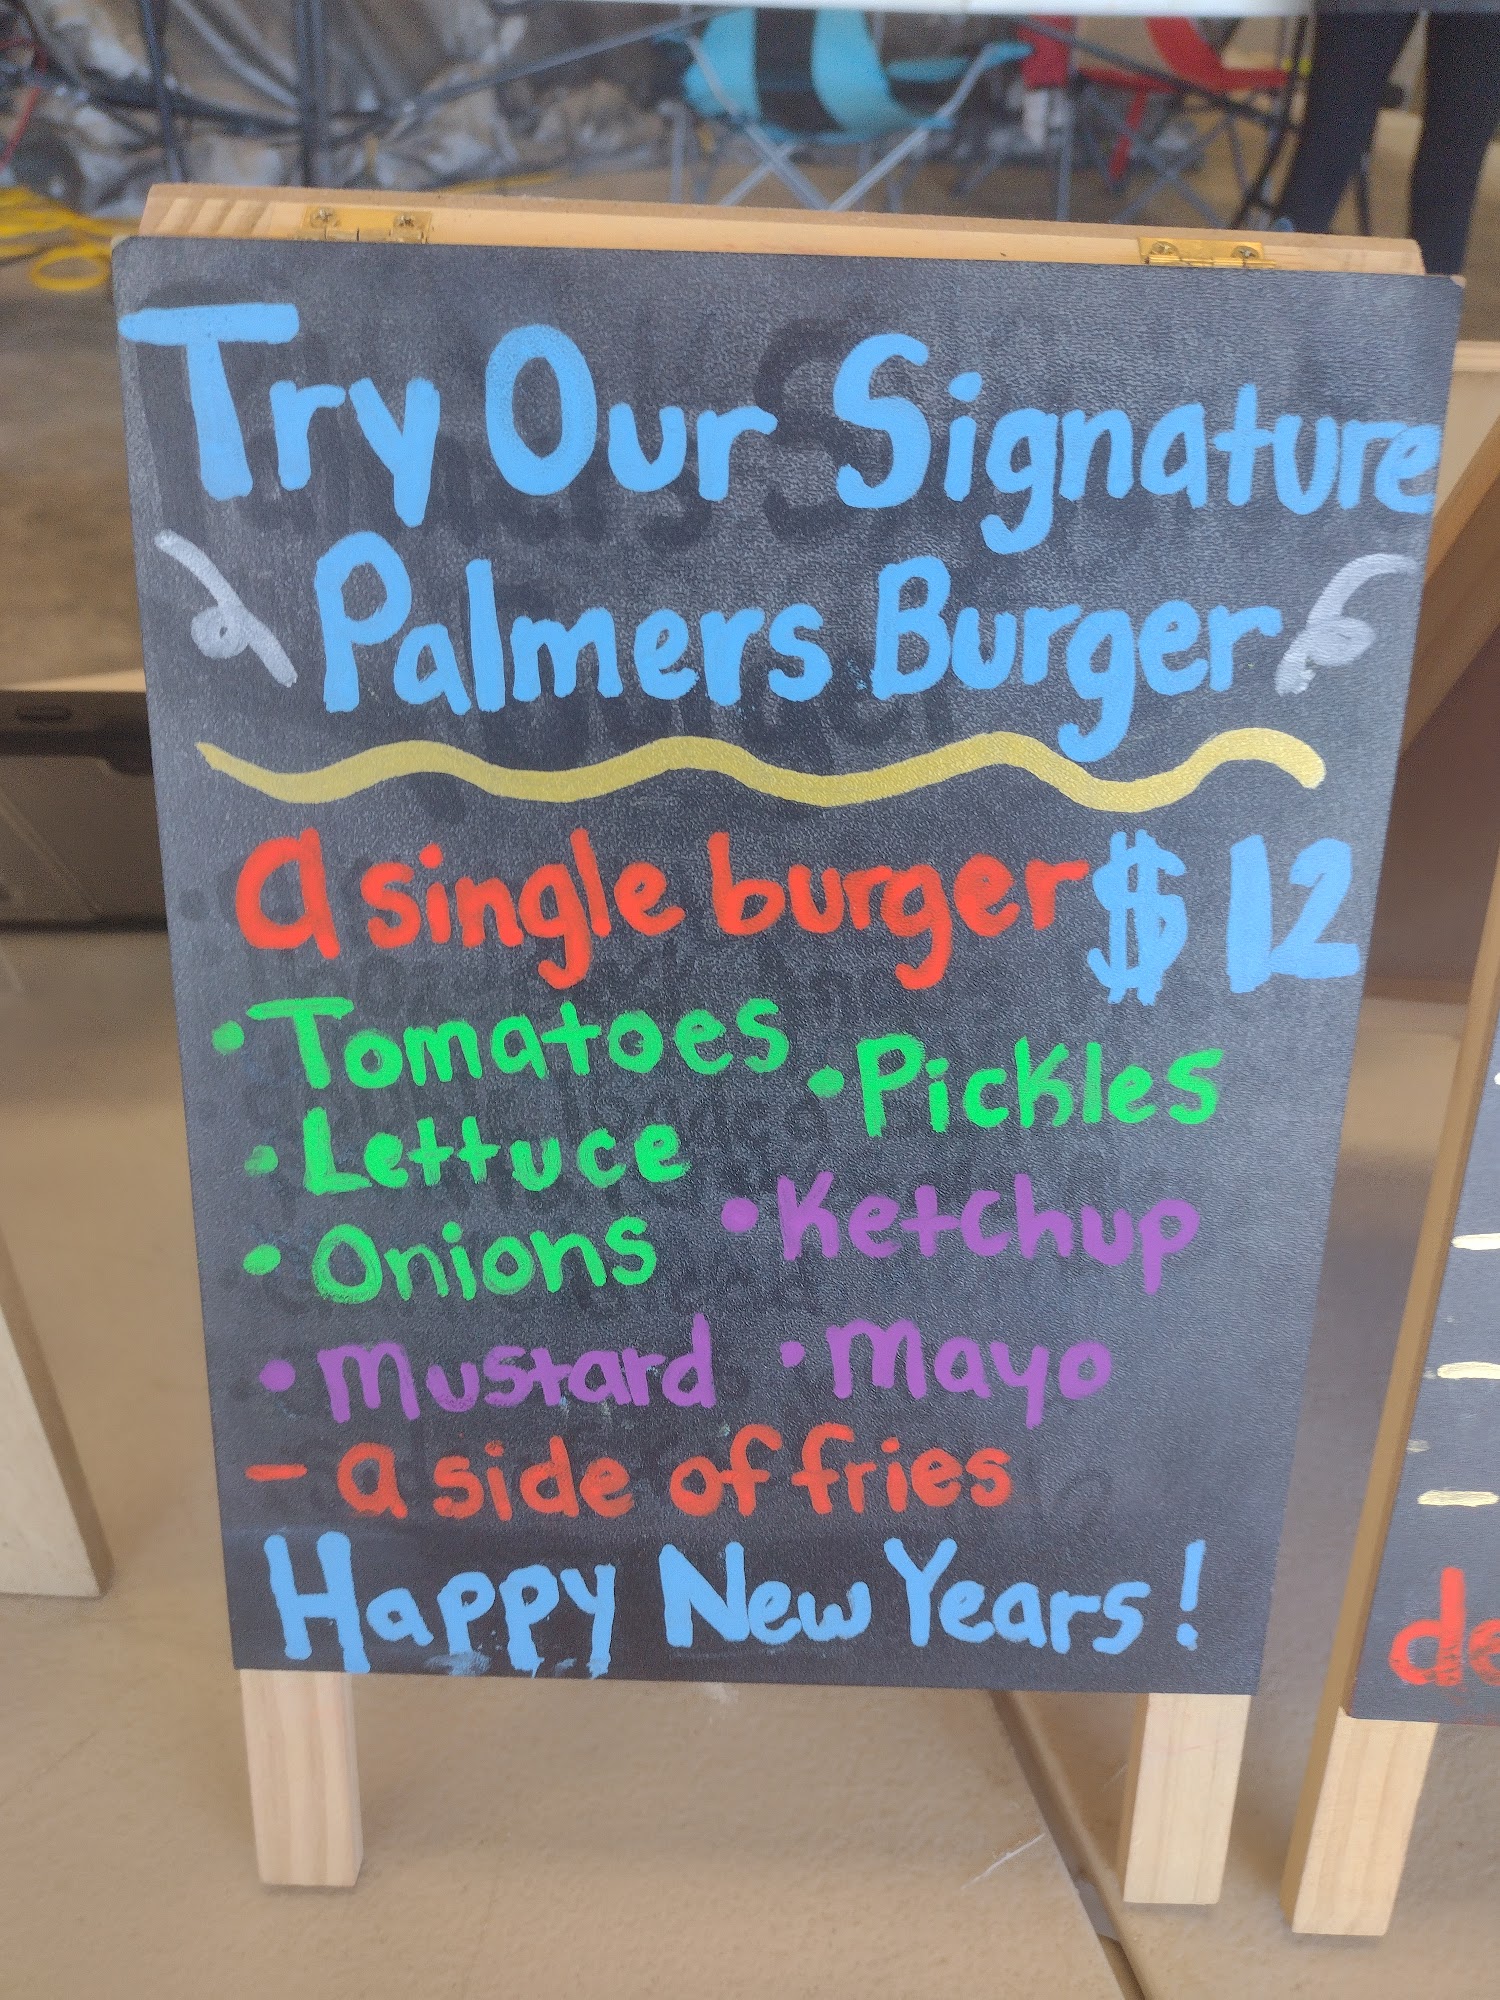 Try Our Signature
Palmers Burger
a single burger $12
• Tomatoes • Pickles
• Lettuce
• Onions • Ketchup
• Mustard • Mayo
- a side of fries
Happy New Years!